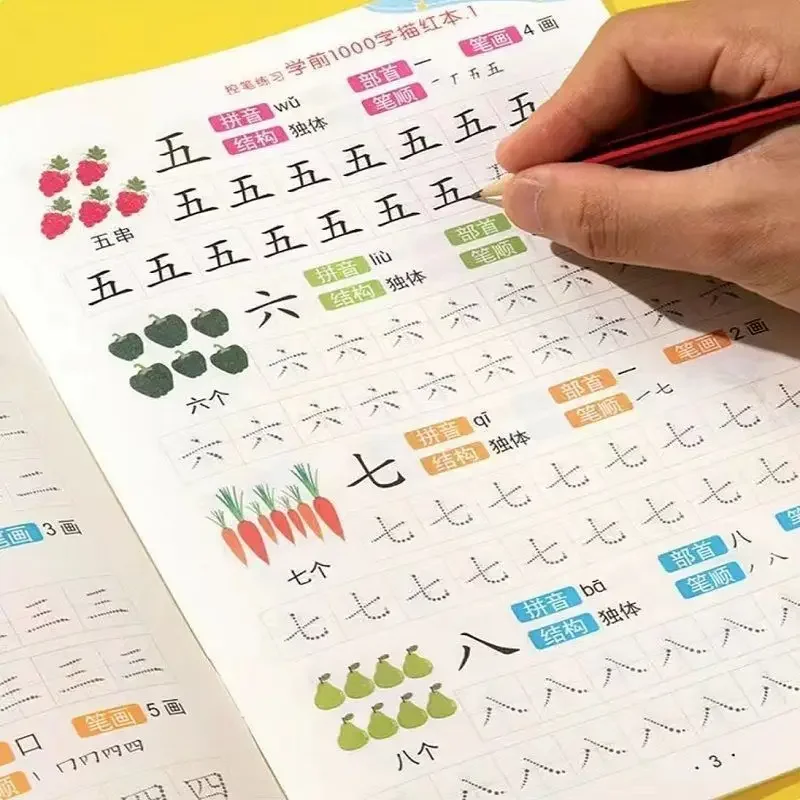 控笔练习 学前1000字描红本.1
五 拼音 wǔ 部首 一 笔画 4画
结构 独体 笔顺 一丁五五
五 五 五 五 五 五 五
五串
五 五 五 五 五 五 五
六 拼音 liù 部首
结构 独体 笔顺
六 六 六 六 六 六 六 六 六
六个
六 六 六 六 六 六 六 六 六
七 拼音 qī 部首 一 笔画 2画
结构 独体 笔顺 一七
七 七 七 七 七 七 七 七
七个
七 七 七 七 七 七 七 七 七
八 拼音 bā 部首 八
结构 独体 笔顺 丿八
八 八 八 八 八 八
八个
八 八 八 八 八
·3·
笔画 3画
三 三
三 三 三
笔画 5画
口
四